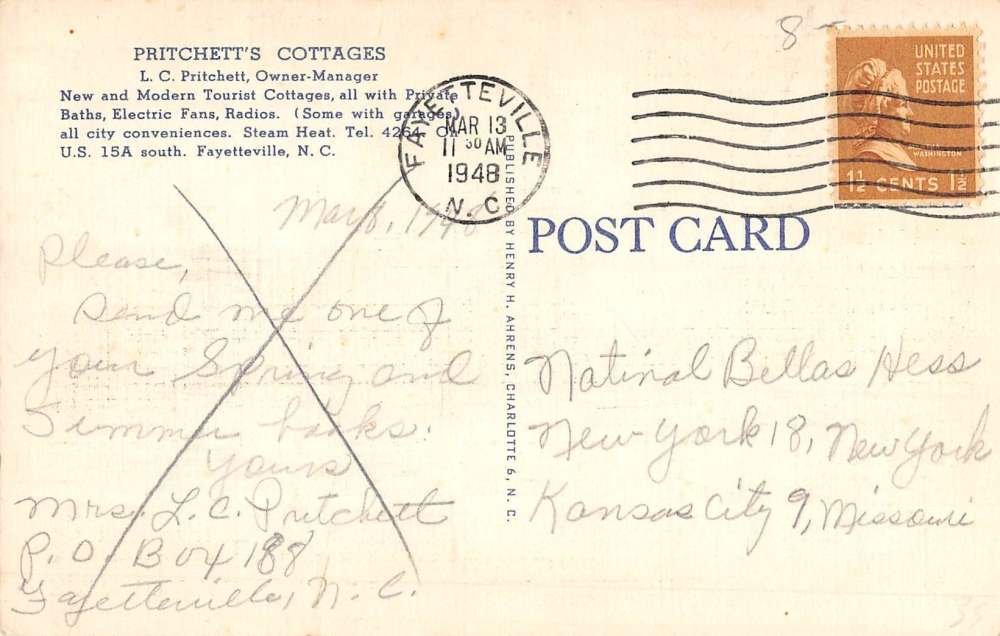 PRITCHETT'S COTTAGES
L. C. Pritchett, Owner-Manager
New and Modern Tourist Cottages, all with Private
Baths, Electric Fans, Radios. (Some with garages)
all city conveniences. Steam Heat. Tel. 4264. On
U.S. 15A south. Fayetteville, N. C.
FAYETTEVILLE
MAR 13
11 30 AM
1948
N. C.
8
UNITED
STATES
POSTAGE
WASHINGTON
1½ CENTS 1½
PUBLISHED BY HENRY H. AHRENS, CHARLOTTE 6, N. C.
POST CARD
Please,
Send me one of
your Spring and
Summer books.
Yours
Mrs. L. C. Pritchett
P. O. Box 188
Fayetteville, N. C.
Natinal Bellas Hess
New York 18, New York
Kansas City 9, Missouri